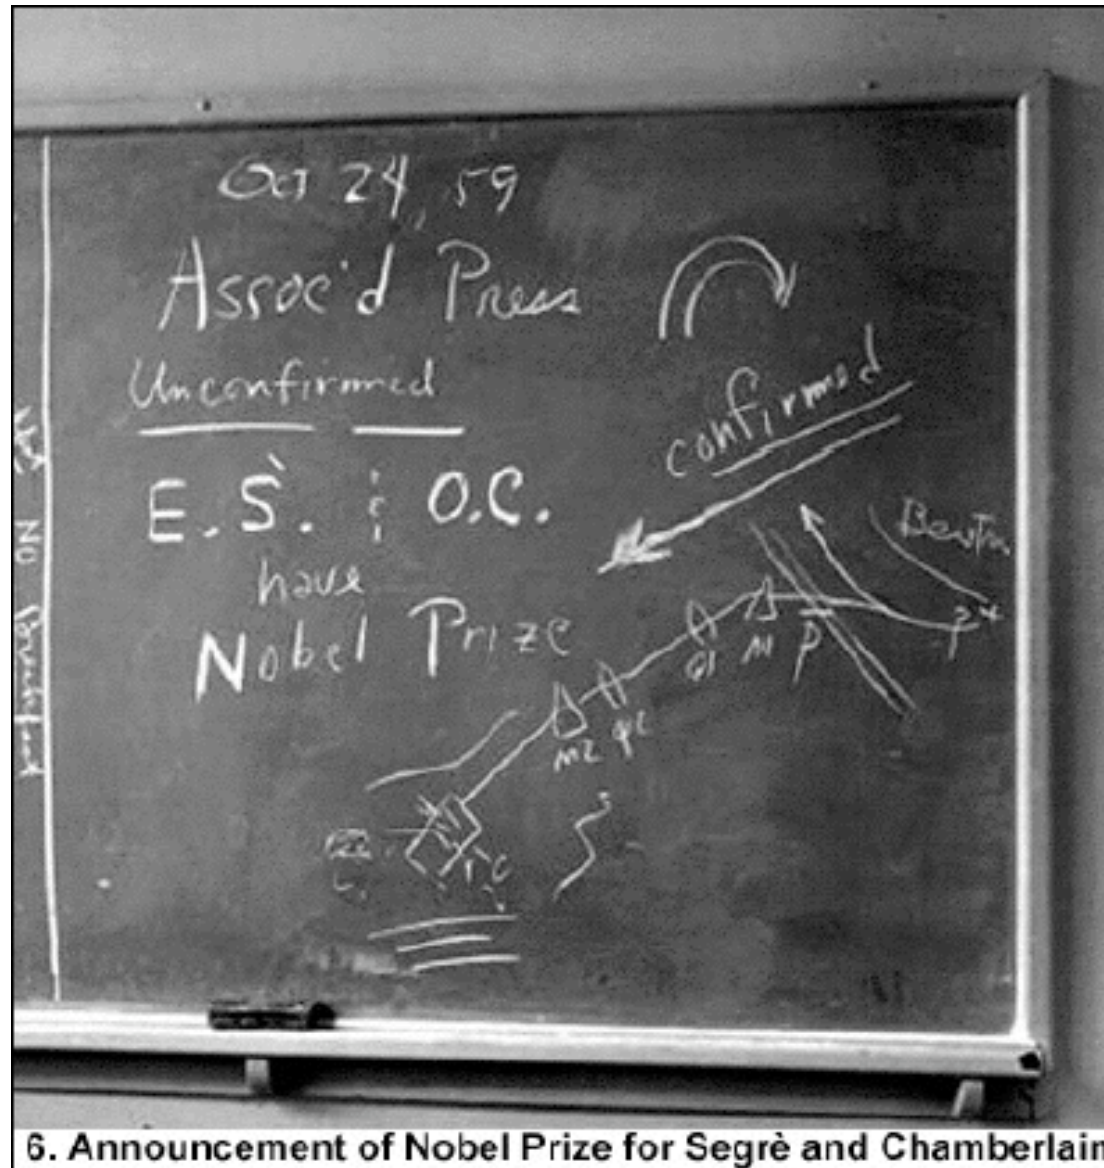 Oct 24, 59
Assoc'd Press
Unconfirmed
confirmed
E.S. & O.C.
have
Nobel Prize
Q1 M1 P
M2 Q2
C
NO
6. Announcement of Nobel Prize for Segrè and Chamberlain